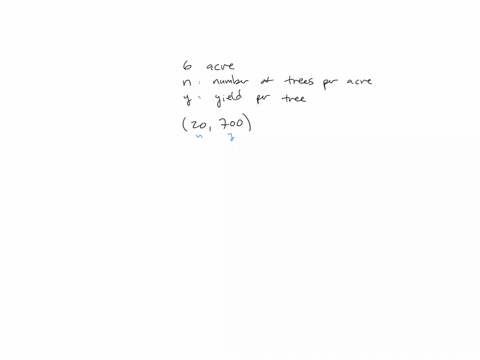 6 acre
n: number of trees per acre
y: yield per tree
(20, 700)
n y